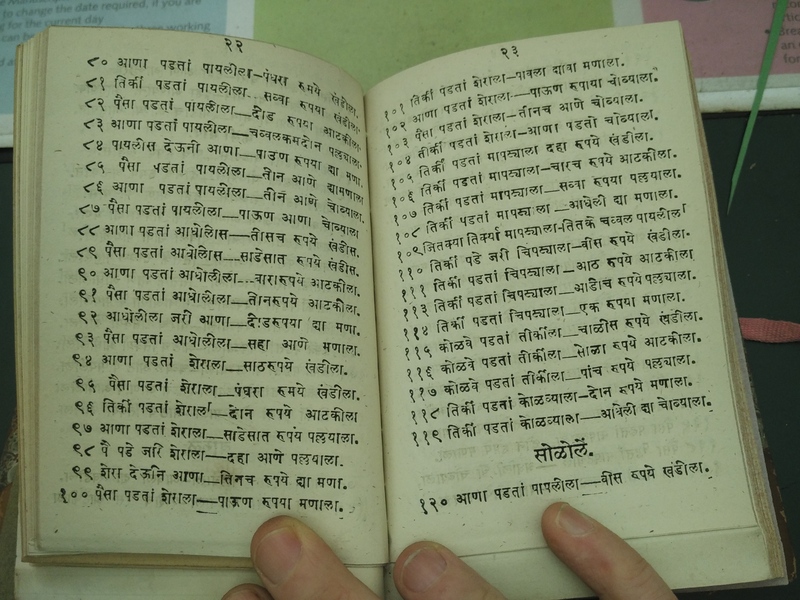 to change the date required, if you are
for the current day
२२
८० आणा पडतां पायलीला—पंधरा रुमये खंडीला.
८१ तिर्की पडतां पायलीला.. सव्वा रुपया खंडीला.
८२ पैसा पडतां पायलीला—दीड रुपया आटकीला.
८३ आणा पडतां पायलीला—चव्वलकमदोन पल्याला.
८४ पायलीस देऊनी आणा—पाउण रूपया द्या मणा.
८५ पैसा पडतां पायलीला—तीन आणे द्यामणाला
८६ आणा पडतां पायलीला—तीन आणे चोव्याला.
८७ पैसा पडतां पायलीला—पाऊण आणा चोव्याला
८८ आणा पडतां आधोलीस—तीसच रुपये खंडीस.
८९ पैसा पडतां आधोलिस—साडेसात रुपये खंडीस.
९० आणा पडतां आधोलीला...बारारुपये आटकीला.
९१ पैसा पडतां आधोलीला—तीनरुपये आटकीला.
९२ आधोलीला जरी आणा—दीडरुपया द्या मणा.
९३ पैसा पडतां आधोलीला—सहा आणे मणाला.
९४ आणा पडतां शेराला—साठरुपये खंडीला.
९५ पैसा पडतां शेराला—पंधरा रुमये खंडीला.
९६ तिर्की पडतां शेराला—दोन रुपये आटकीला
९७ आणा पडतां शेराला—साडेसात रुपये पल्ययाला.
९८ पै पडे जरि शेराला—दहा आणे पल्ययाला.
९९ शेरा देऊनि आणा—तिनच रुपये द्या मणा.
१०० पैसा पडतां शेराला—पाऊण रुपया मणाला.
२३
१०१ तिर्की पडतां शेराला—पावला द्यावा मणाला.
१०२ आणा पडतां शेराला—पाऊण रुपाया चोव्याला.
१०३ पैसा पडतां शेराला—तीनच आणे चोव्याला.
१०४ तीर्की पडतां शेराला—आणा पडतो चोव्याला.
१०५ तिर्की पडतां मापट्याला दहा रुपये खंडीला.
१०६ तिर्की पडतां मापट्याला—चारच रूपये आटकीला.
१०७ तिर्की पडतां मापट्याला—सव्वा रुपया पल्याला.
१०८ तिर्की पडतां मापट्याला—आधेली द्या मणाला.
१०९ जितक्या तिर्क्या मापट्याला-तितके चव्वल पायलीला
११० तिर्की पडे जरी चिपट्याला—वीस रुपये खंडीला.
१११ तिर्की पडतां चिपट्याला—आठ रुपये आटकीला
११३ तिर्की पडतां चिपट्याला—आडीच रुपये पल्याला.
११४ तिर्की पडतां चिपट्याला—एक रुपया मणाला.
११५ कोळवे पडतां तीर्कीला—चाळीस रुपये खंडीला.
११६ कोळवे पडतां तीर्कीला—सोळा रुपये आटकीला.
११७ कोळवे पडतां तीर्कीला—पांच रुपये पल्याला.
११८ तिर्की पडतां कोळव्याला—दोन रुपये मणाला.
११९ तिर्की पडतां कोळव्याला—आधेली द्या चोव्याला.
सोळोलें.
१२० आणा पडतां पापलीला—वीस रुपये खंडीला.